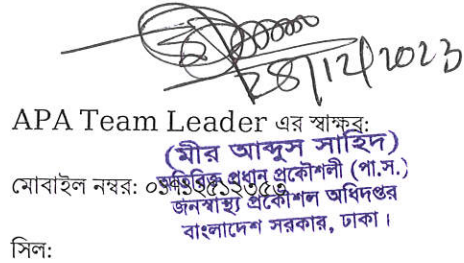 28/12/2023
APA Team Leader এর স্বাক্ষর:
(মীর আব্দুস সাহিদ)
অতিরিক্ত প্রধান প্রকৌশলী (পা.স.)
মোবাইল নম্বর:
জনস্বাস্থ্য প্রকৌশল অধিদপ্তর
বাংলাদেশ সরকার, ঢাকা।
সিল: